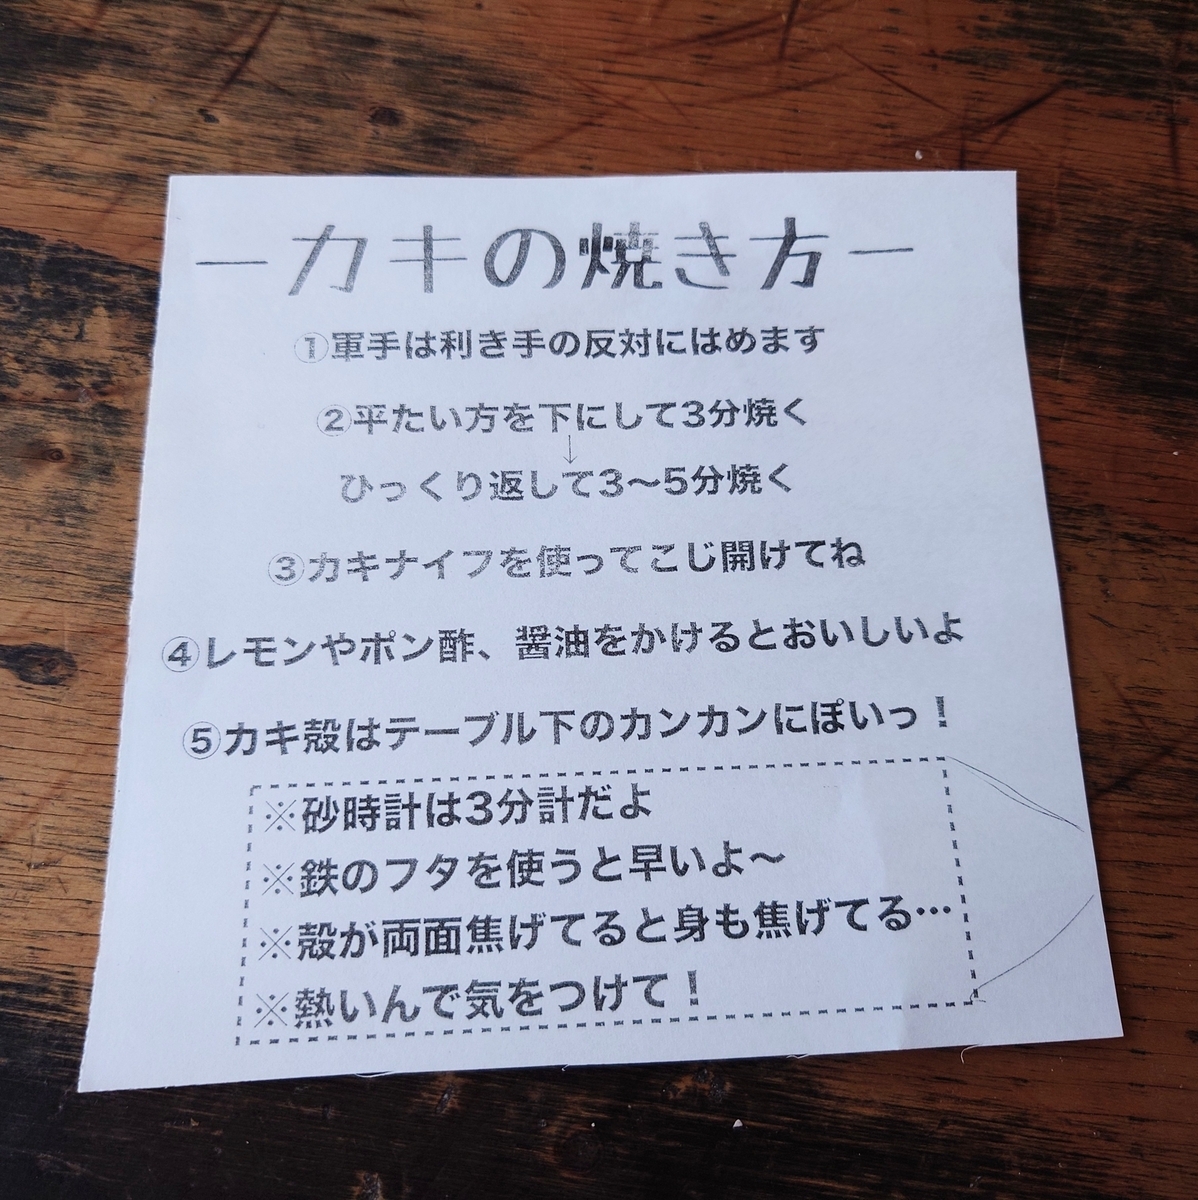 ーカキの焼き方ー
①軍手は利き手の反対にはめます
②平たい方を下にして3分焼く
↓
ひっくり返して3〜5分焼く
③カキナイフを使ってこじ開けてね
④レモンやポン酢、醤油をかけるとおいしいよ
⑤カキ殻はテーブル下のカンカンにぽいっ！
※砂時計は3分計だよ
※鉄のフタを使うと早いよ〜
※殻が両面焦げてると身も焦げてる…
※熱いんで気をつけて！